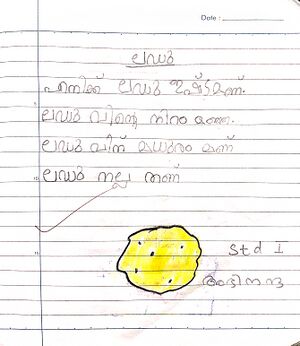 Date :
ലഡു
എനിക്ക് ലഡു ഇഷ്ടമാണ്.
ലഡു വിന്റെ നിറം മഞ്ഞ.
ലഡു വിന് മധുരം മാണ്
ലഡു നല്ല താണ്
Std I
അഭിനന്ദ